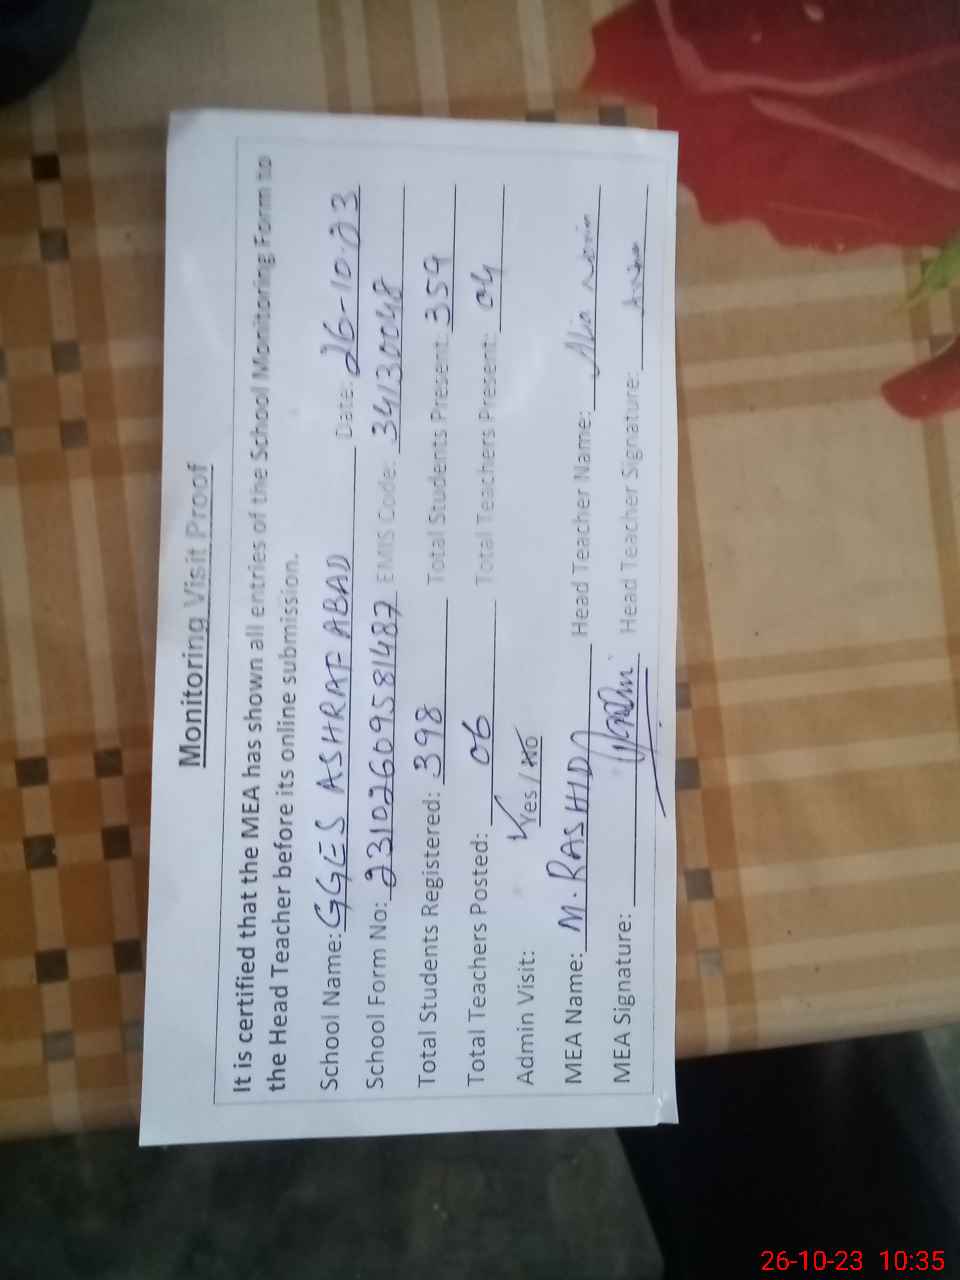 Monitoring Visit Proof
It is certified that the MEA has shown all entries of the School Monitoring Form to
the Head Teacher before its online submission.
School Name: GGES ASHRAF ABAD Date: 26-10-23
School Form No: 23102609581487 EMIS Code: 34130048
Total Students Registered: 398 Total Students Present: 359
Total Teachers Posted: 06 Total Teachers Present: 04
Admin Visit: Yes / No
MEA Name: M. RASHID Head Teacher Name:
MEA Signature: Head Teacher Signature:
26-10-23 10:35